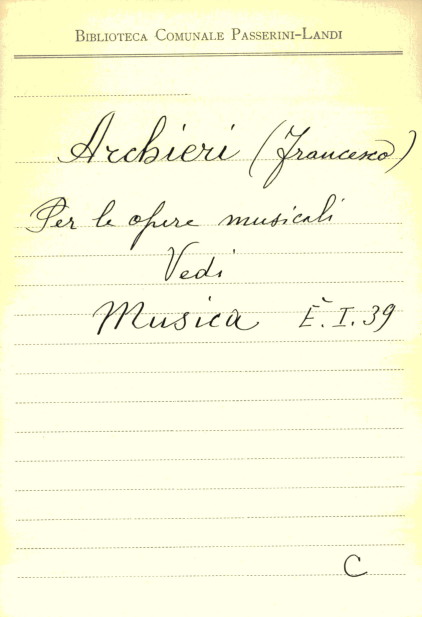 Biblioteca Comunale Passerini-Landi
Archieri (Francesco)
Per le opere musicali
Vedi
Musica E. I. 39
C